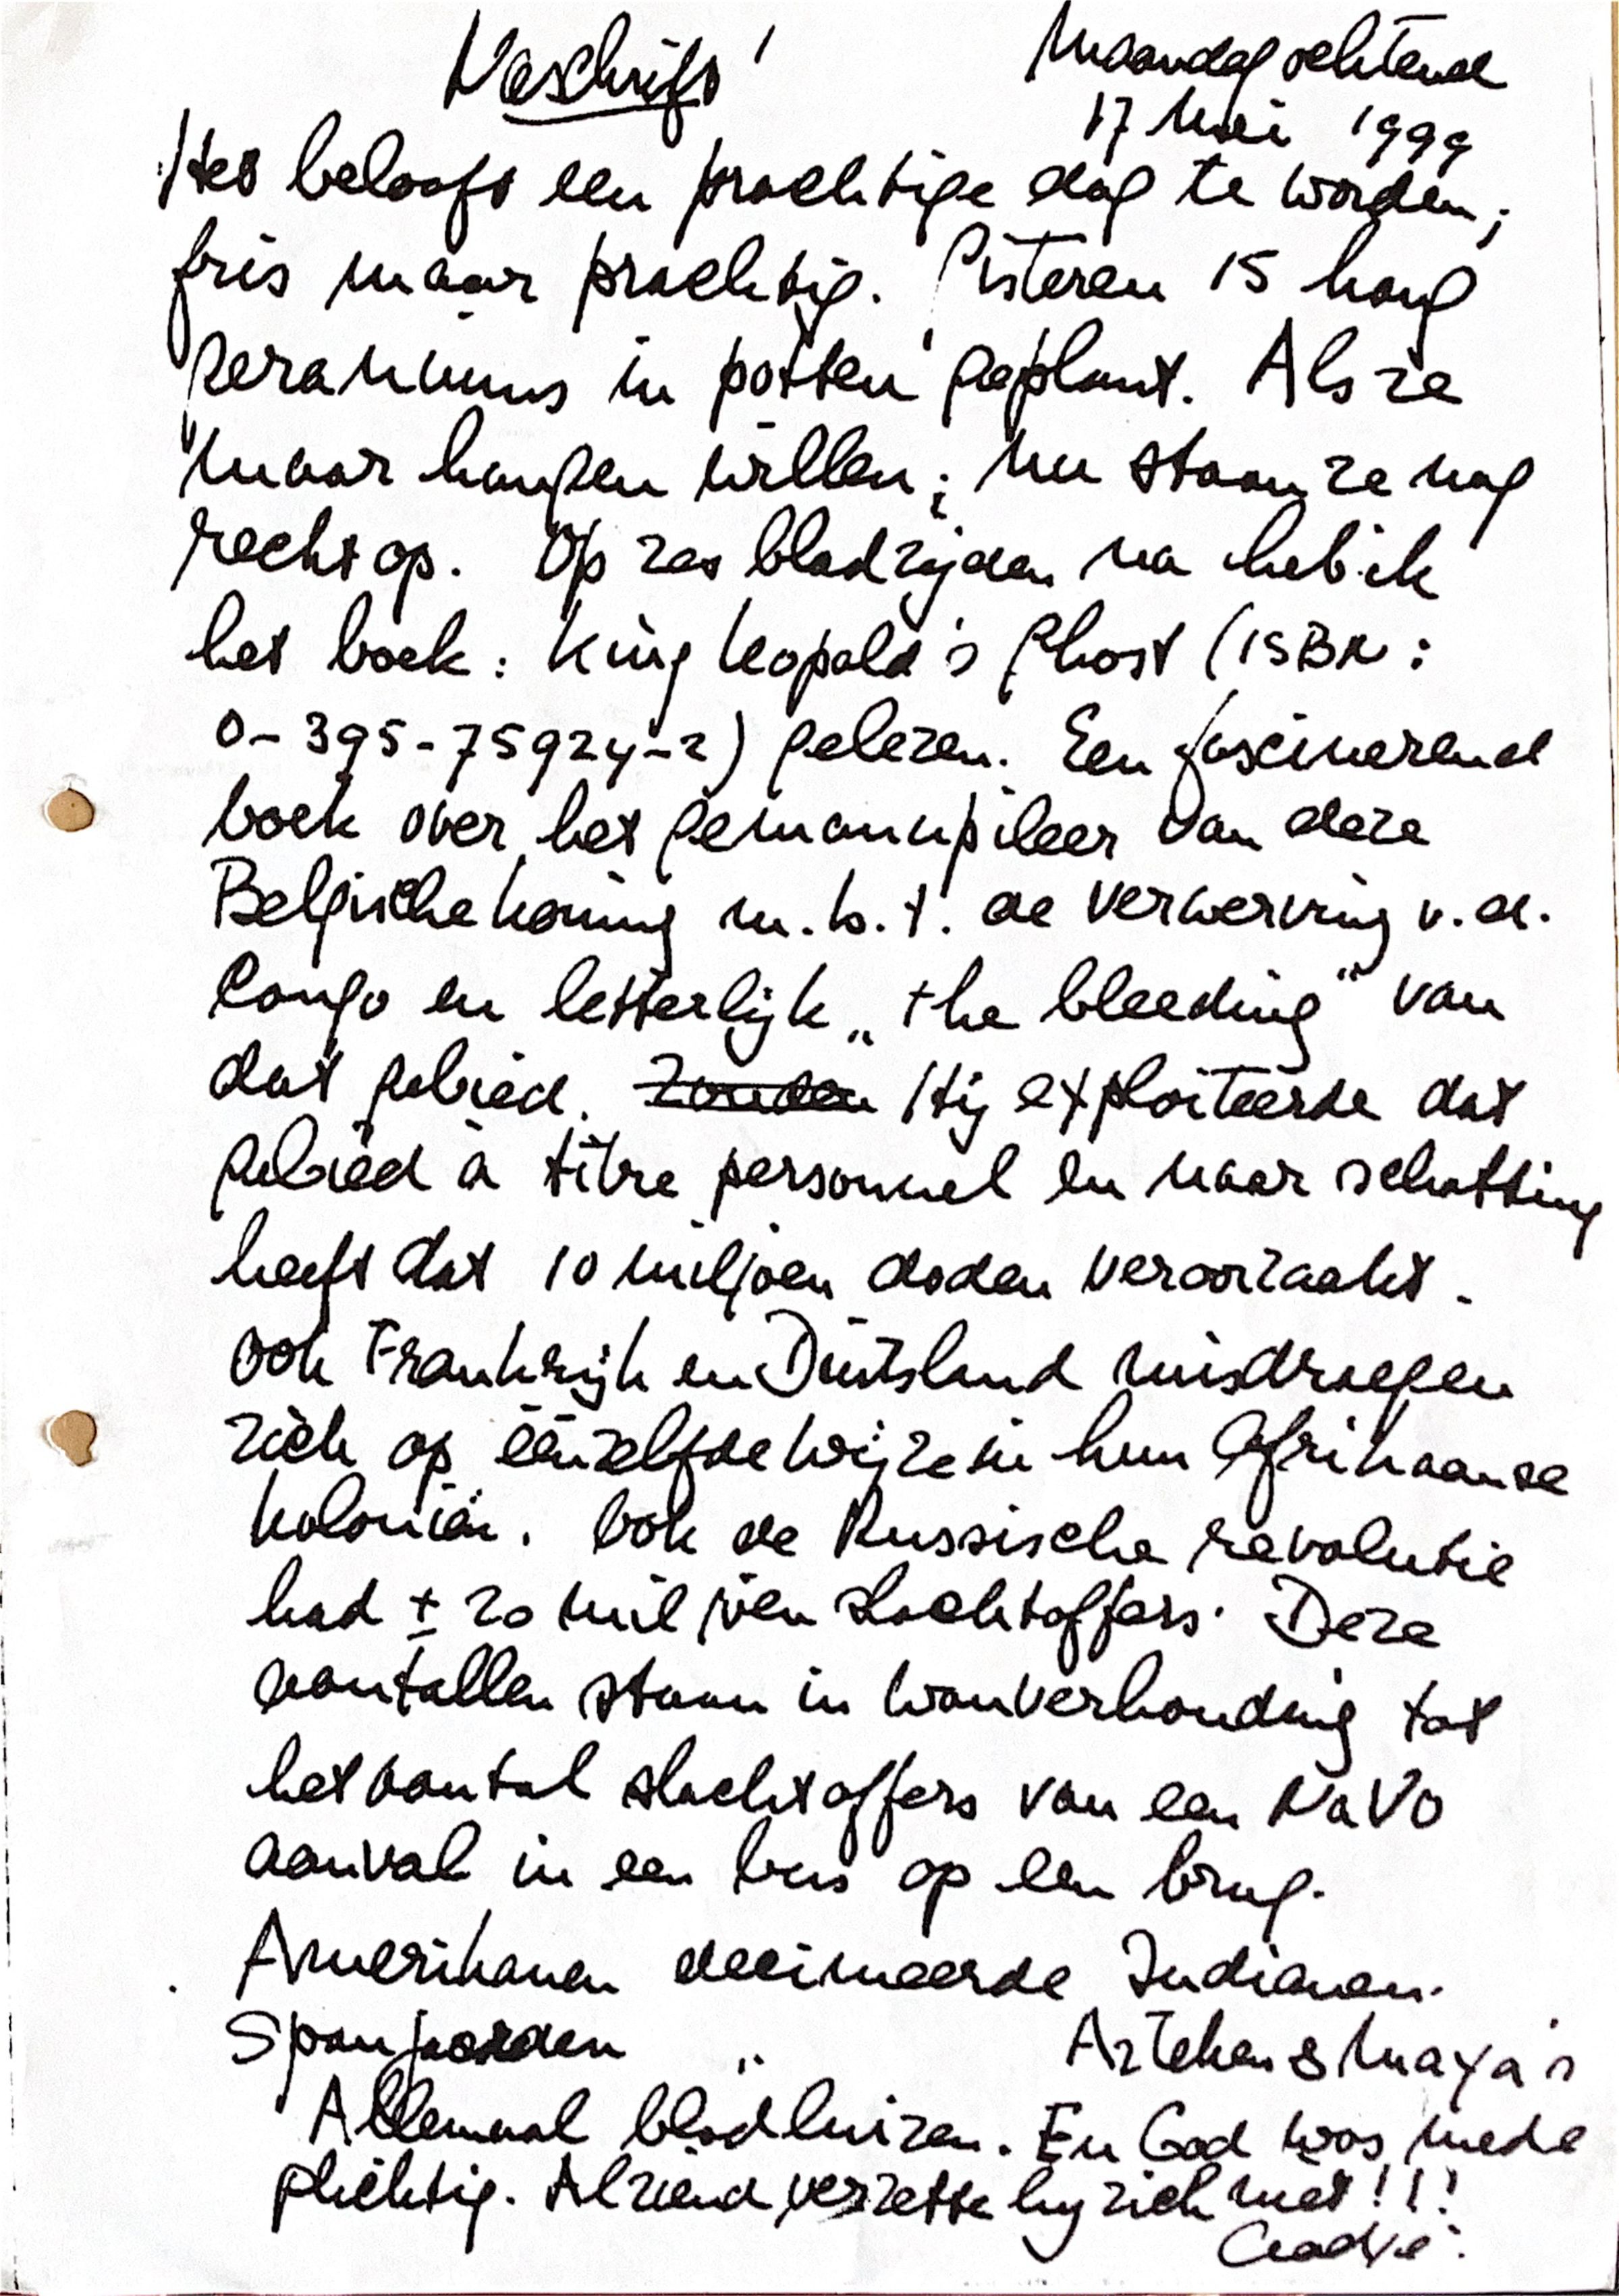 Naschrift
Maandagochtend
17 Mei 1999
Het belooft een prachtige dag te worden;
fris maar prachtig. Gisteren 15 hang
geraniums in potten geplant. Als ze
maar hangen willen; nu staan ze nog
rechtop. Op zes bladzijden na heb ik
het boek: King Leopold's Ghost (ISBN:
0-395-75924-2) gelezen. Een fascinerend
boek over het gemanupileer van deze
Belgische koning m.b.t. de verwerving v.d.
Congo en letterlijk „the bleeding" van
dat gebied. Zonden Hij exploiteerde dat
gebied à titre personnel en naar schatting
heeft dat 10 miljoen doden veroorzaakt.
Ook Frankrijk en Duitsland misdroegen
zich op éénzelfde wijze in hun Afrikaanse
koloniën. Ook de Russische revolutie
had ± 20 miljoen slachtoffers. Deze
aantallen staan in wanverhouding tot
het aantal slachtoffers van een NaVo
aanval in een bus op een brug.
Amerikanen decimeerde Indianen.
Spanjaarden „ Azteken & Maya's
Allemaal bloedluizen. En God was mede
plichtig. Alziend verzette hij zich niet!!!